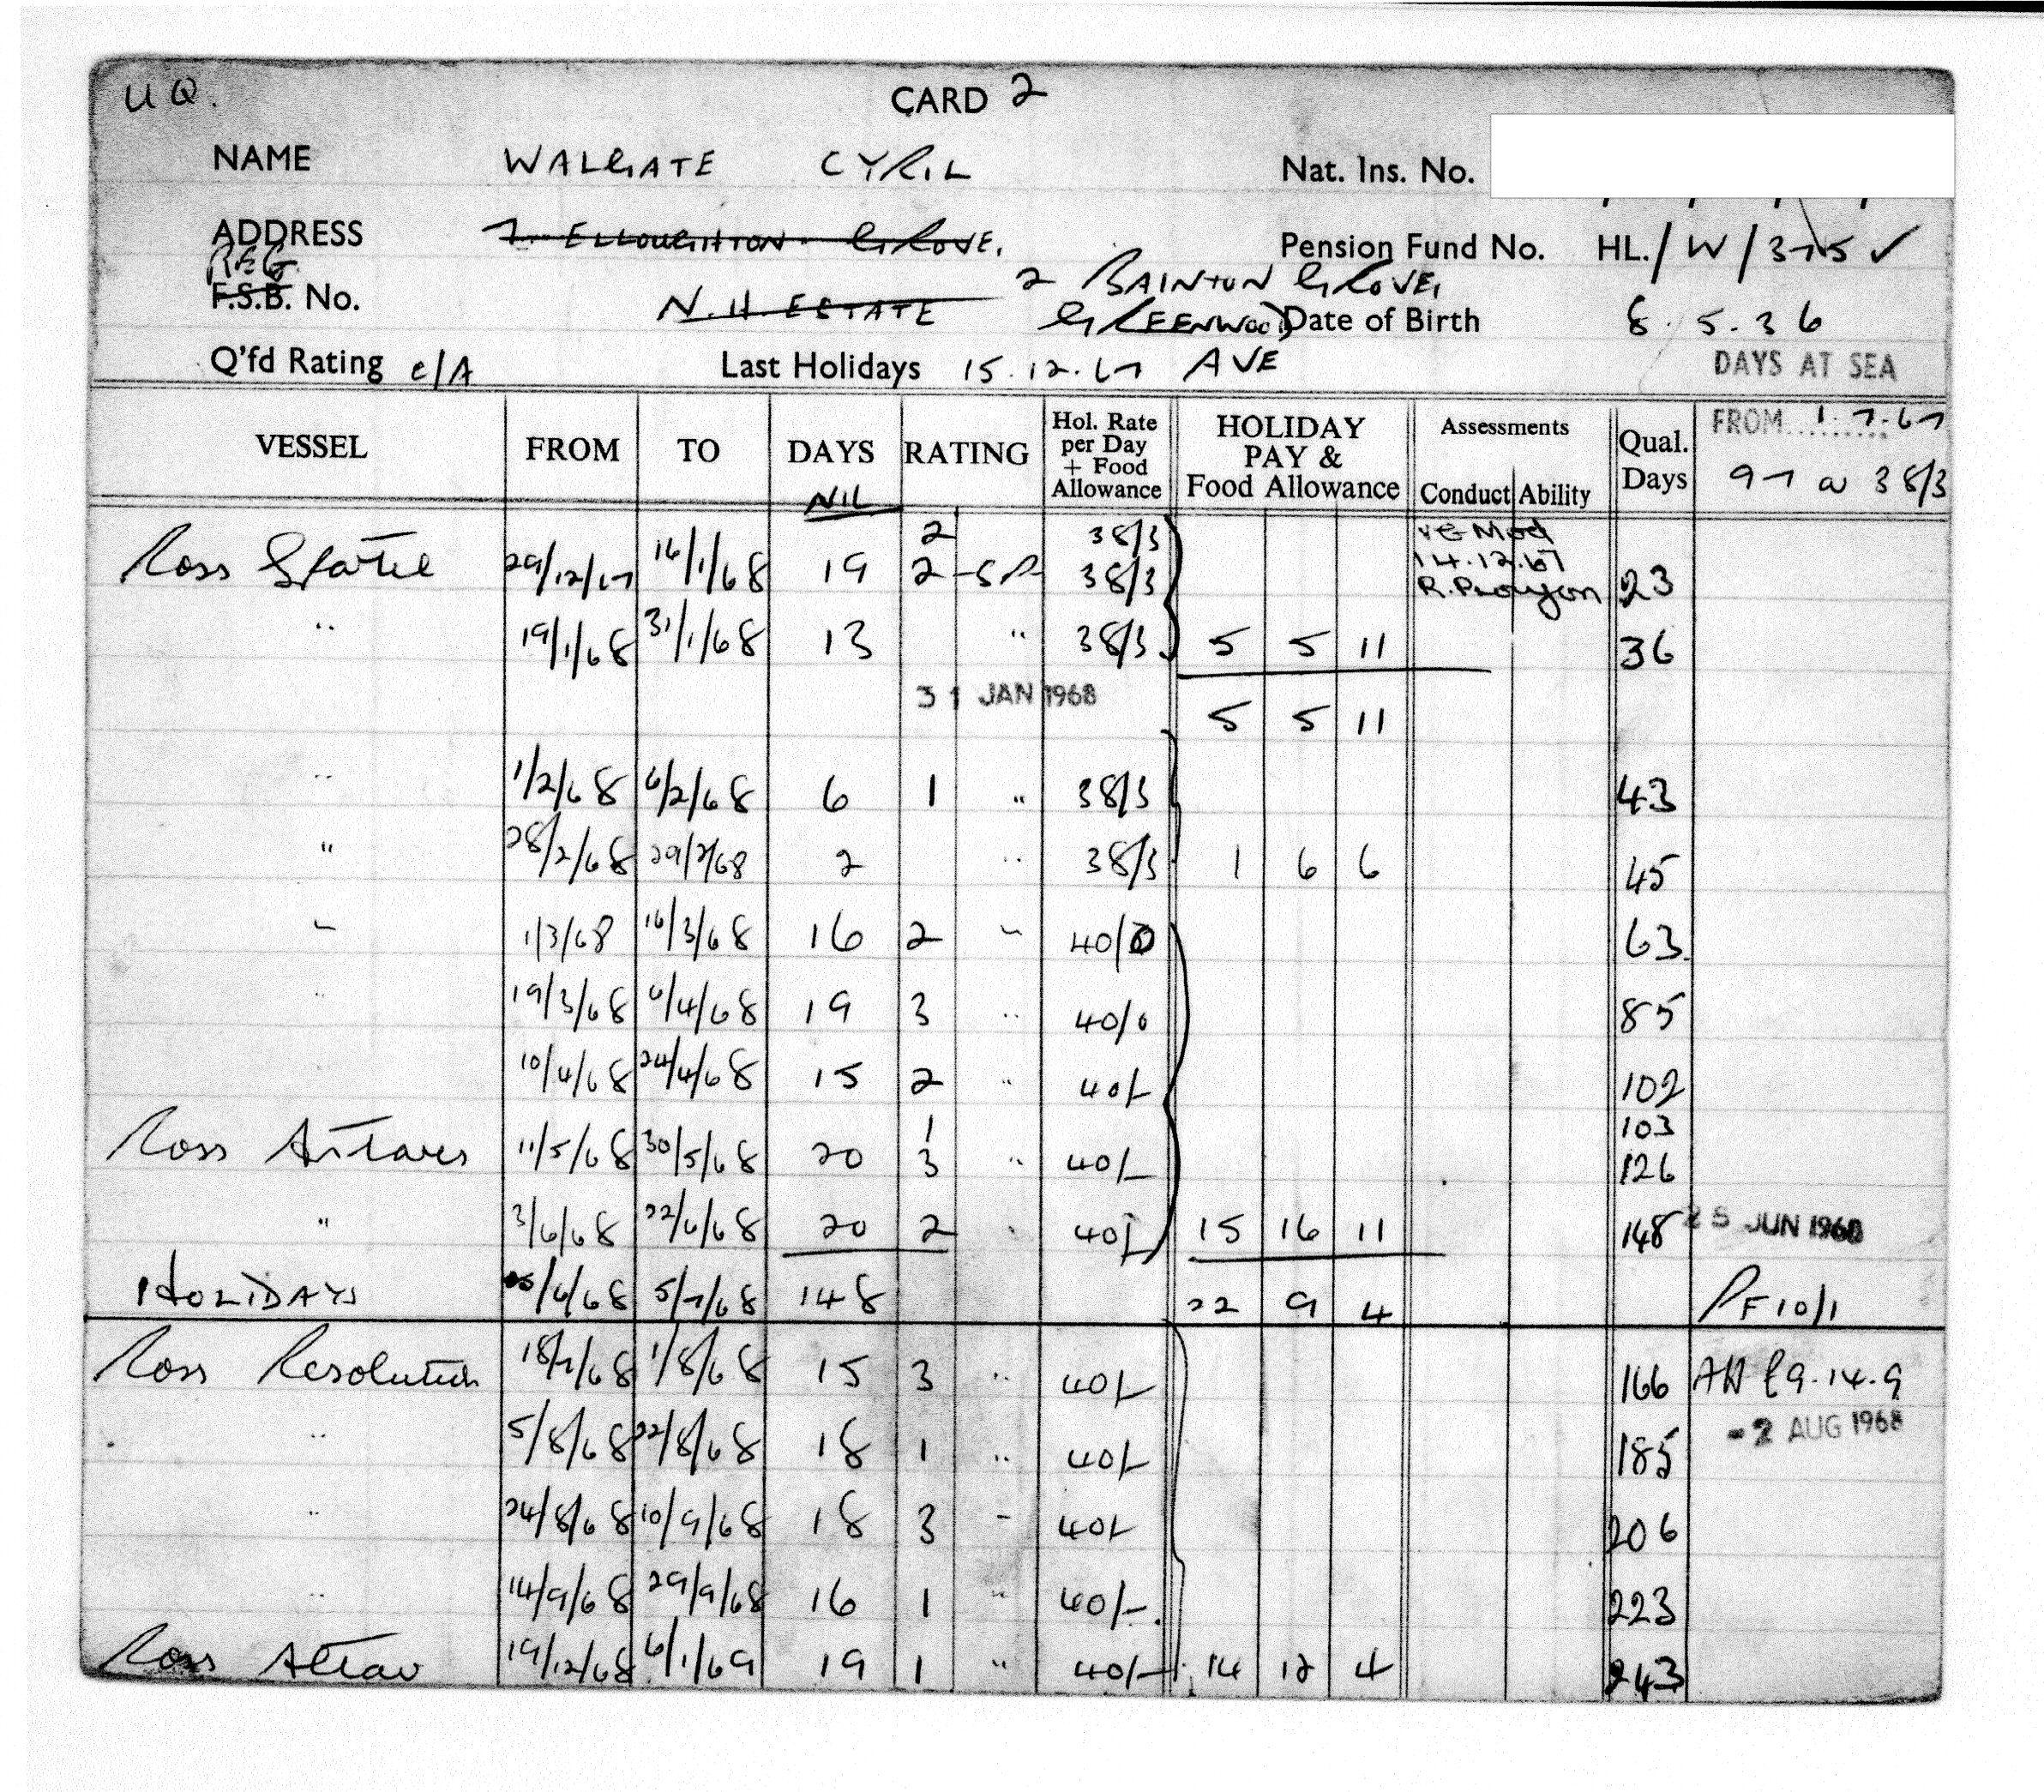 U Q. CARD 2
NAME WALGATE CYRIL Nat. Ins. No.
ADDRESS 7. ELLOUGHTON GROVE. Pension Fund No. HL./W/375 ✓
REG
F.S.B. No. N.H. ESTATE 2 BAINTON GROVE,
GREENWOOD Date of Birth 8.5.36
Q'fd Rating e/A Last Holidays 15.12.67 AVE DAYS AT SEA
VESSEL FROM TO DAYS RATING Hol. Rate per Day + Food Allowance HOLIDAY PAY & Food Allowance Assessments Conduct Ability Qual. Days FROM 1.7.67
97 @ 38/3
NIL
2 38/3 VG Mod
Ross 29/12/67 16/1/68 19 2 SP 38/3 14.12.67 23
R.
" 19/1/68 31/1/68 13 " 38/3 5 5 11 36
31 JAN 1968 5 5 11
" 1/2/68 6/2/68 6 1 " 38/3 43
" 28/2/68 29/2/68 2 " 38/3 1 6 6 45
" 1/3/68 16/3/68 16 2 " 40/0 63
" 19/3/68 6/4/68 19 3 " 40/0 85
10/4/68 24/4/68 15 2 " 40/- 102
1 103
Ross 11/5/68 30/5/68 20 3 " 40/- 126
" 3/6/68 22/6/68 20 2 " 40/- 15 16 11 148 25 JUN 1968
HOLIDAYS /6/68 5/7/68 148 22 9 4 PF10/1
Ross Resolution 18/7/68 1/8/68 15 3 " 40/- 166 £9.14.9
" 5/8/68 22/8/68 18 1 " 40/- 185 -2 AUG 1968
" 24/8/68 10/9/68 18 3 " 40/- 206
" 14/9/68 29/9/68 16 1 " 40/-. 223
Ross Altair 19/12/68 6/1/69 19 1 " 40/- 14 12 4 243